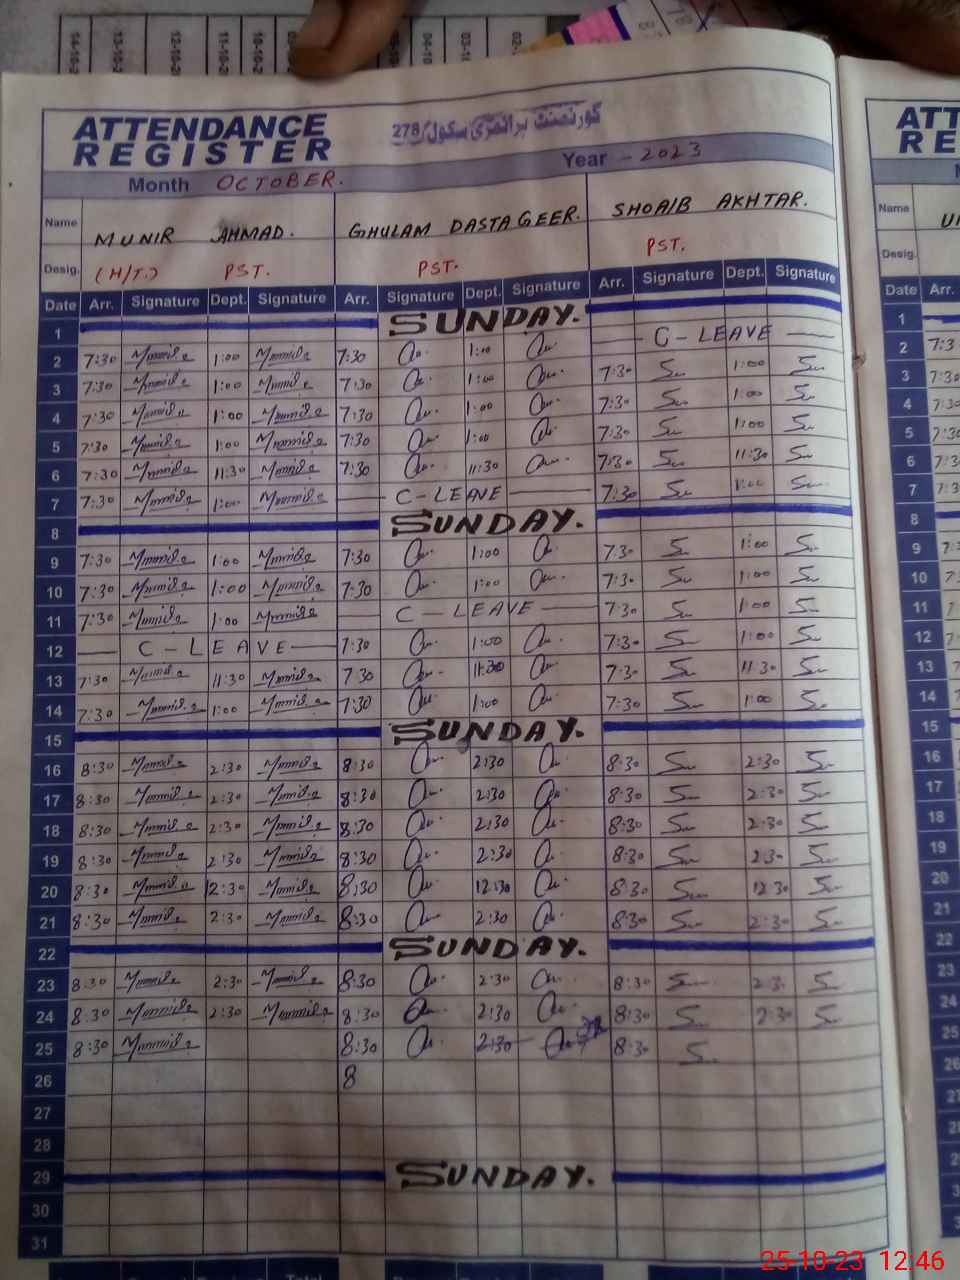 14-10-2 13-10-2 12-10-20 11-10-20 10-10-2 04-10 03-10 02-
ATTENDANCE
REGISTER
گورنمنٹ پرائمری سکول 278
Month OCTOBER. Year - 2023
Name MUNIR AHMAD. GHULAM DASTAGEER. SHOAIB AKHTAR.
Desig. (H/T.) PST. PST. PST.
Date Arr. Signature Dept. Signature Arr. Signature Dept. Signature Arr. Signature Dept. Signature
1 SUNDAY.
2 7:30 1:00 7:30 1:00 C-LEAVE
3 7:30 1:00 7:30 1:00 7:30 1:00
4 7:30 1:00 7:30 1:00 7:30 1:00
5 7:30 1:00 7:30 1:00 7:30 1:00
6 7:30 11:30 7:30 11:30 7:30 11:30
7 7:30 1:00 C-LEAVE 7:30 1:00
8 SUNDAY.
9 7:30 1:00 7:30 1:00 7:30 1:00
10 7:30 1:00 7:30 1:00 7:30 1:00
11 7:30 1:00 C-LEAVE 7:30 1:00
12 C-LEAVE 7:30 1:00 7:30 1:00
13 7:30 11:30 7 30 11:30 7:30 11:30
14 7:30 1:00 7:30 1:00 7:30 1:00
15 SUNDAY.
16 8:30 2:30 8:30 2:30 8:30 2:30
17 8:30 2:30 8:30 2:30 8:30 2:30
18 8:30 2:30 8:30 2:30 8:30 2:30
19 8:30 2:30 8:30 2:30 8:30 2:30
20 8:30 12:30 8:30 12:30 8:30 12:30
21 8:30 2:30 8:30 2:30 8:30 2:30
22 SUNDAY.
23 8:30 2:30 8:30 2:30 8:30 2:30
24 8:30 2:30 8:30 2:30 8:30 2:30
25 8:30 8:30 2:30 8:30
26 8
27
28
29 SUNDAY.
30
31
Total
ATT
RE
Name
Desig.
Date Arr.
1
2 7:3
3 7:3
4 7:30
5 7:30
6 7:3
7 7:3
8
9
10
11
12
13
14
15
16
17
18
19
20
21
22
23
24
25
26
27
25-10-23 12:46